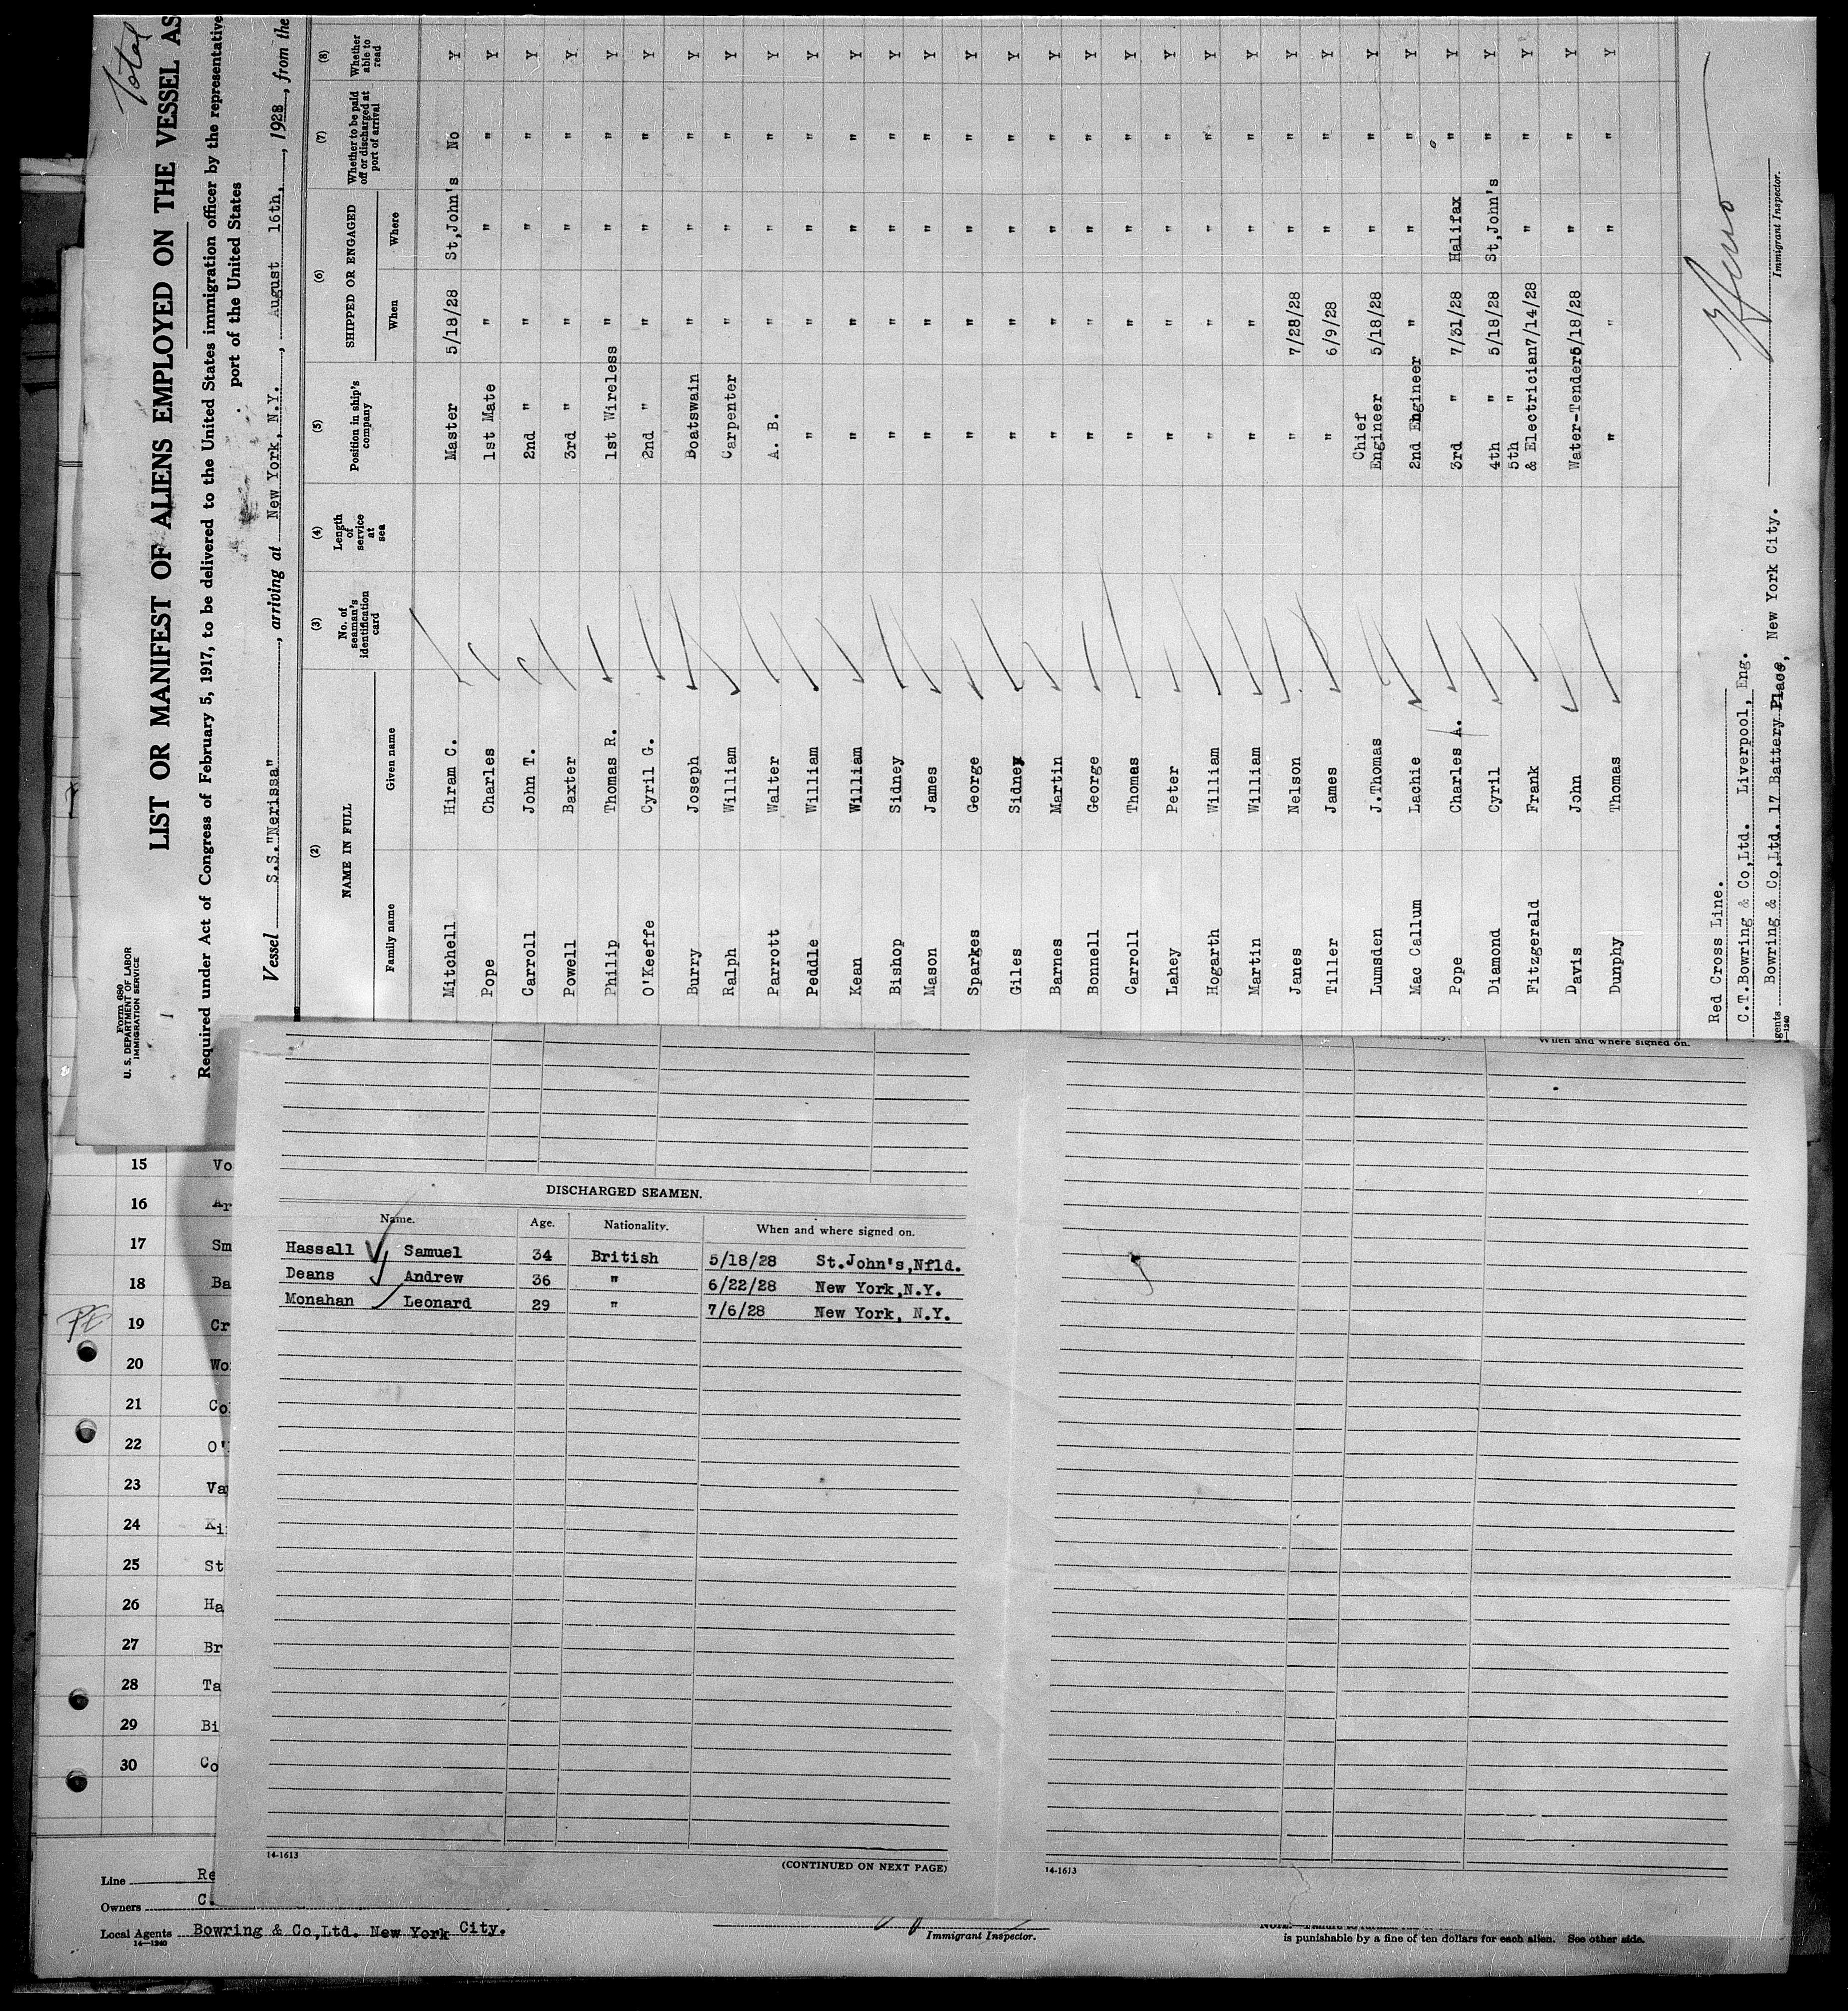 Total
Form 680
U. S. DEPARTMENT OF LABOR
IMMIGRATION SERVICE
LIST OR MANIFEST OF ALIENS EMPLOYED ON THE VESSEL AS
Required under Act of Congress of February 5, 1917, to be delivered to the United States immigration officer by the representative
port of the United States
Vessel S.S."Nerissa", arriving at New York, N.Y., August 16th, 1928, from the
(2) (3) (4) (5) (6) (7) (8)
NAME IN FULL No. of seaman's identification card Length of service at sea Position in ship's company SHIPPED OR ENGAGED Whether to be paid off or discharged at port of arrival Whether able to read
Family name Given name When Where
Mitchell Hiram C. Master 5/18/28 St,John's No Y
Pope Charles 1st Mate " " " Y
Carroll John T. 2nd " " " " Y
Powell Baxter 3rd " " " " Y
Philip Thomas R. 1st Wireless " " " Y
O'Keeffe Cyril G. 2nd " " " " Y
Burry Joseph Boatswain " " " Y
Ralph William Carpenter " " " Y
Parrott Walter A. B. " " " Y
Peddle William " " " " Y
Kean William " " " " Y
Bishop Sidney " " " " Y
Mason James " " " " Y
Sparkes George " " " " Y
Giles Sidney " " " " Y
Barnes Martin " " " " Y
Bonnell George " " " " Y
Carroll Thomas " " " " Y
Lahey Peter " " " " Y
Hogarth William " " " " Y
Martin William " " " " Y
Janes Nelson " 7/28/28 " " Y
Tiller James " 6/9/28 " " Y
Lumsden J.Thomas Chief Engineer 5/18/28 " " Y
Mac Callum Lachie 2nd Engineer " " " Y
Pope Charles A. 3rd " 7/31/28 Halifax " Y
Diamond Cyril 4th " 5/18/28 St,John's " Y
Fitzgerald Frank 5th " & Electrician 7/14/28 " " Y
Davis John Water-Tender 5/18/28 " " Y
Dunphy Thomas " " " " Y
Red Cross Line.
C.T.Bowring & Co,Ltd. Liverpool, Eng.
gents Bowring & Co,Ltd. 17 Battery Place, New York City.
—1240
Immigrant Inspector.
When and where signed on.
DISCHARGED SEAMEN.
Name. Age. Nationality. When and where signed on.
Hassall Samuel 34 British 5/18/28 St.John's,Nfld.
Deans Andrew 36 " 6/22/28 New York,N.Y.
Monahan Leonard 29 " 7/6/28 New York, N.Y.
14-1613
(CONTINUED ON NEXT PAGE)
14-1613
15 Vo
16 Ar
17 Sm
18 Ba
19 Cr
20 Wo
21 Co
22 O'
23 Va
24 Ki
25 St
26 Ha
27 Br
28 Ta
29 Bi
30 Co
Line Re
Owners C.
Local Agents Bowring & Co,Ltd. New York City.
14—1240
Immigrant Inspector.
is punishable by a fine of ten dollars for each alien. See other side.